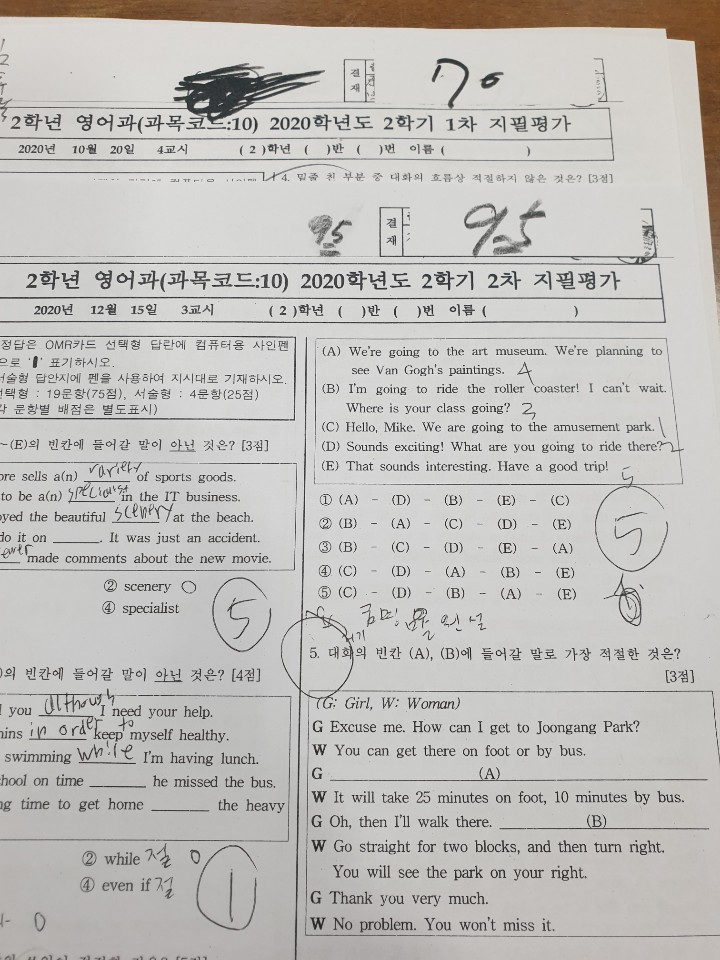 결
재
70
2학년 영어과(과목코드:10) 2020학년도 2학기 1차 지필평가
2020년 10월 20일 4교시 ( 2 )학년 ( )반 ( )번 이름 ( )
4. 밑줄 친 부분 중 대화의 흐름상 적절하지 않은 것은? [3점]
95
결
재
95
2학년 영어과(과목코드:10) 2020학년도 2학기 2차 지필평가
2020년 12월 15일 3교시 ( 2 )학년 ( )반 ( )번 이름 ( )
정답은 OMR카드 선택형 답란에 컴퓨터용 사인펜
으로 '●' 표기하시오.
서술형 답안지에 펜을 사용하여 지시대로 기재하시오.
선택형 : 19문항(75점), 서술형 : 4문항(25점)
각 문항별 배점은 별도표시)
~(E)의 빈칸에 들어갈 말이 아닌 것은? [3점]
ore sells a(n) variety of sports goods.
to be a(n) specialist in the IT business.
oyed the beautiful scenery at the beach.
do it on ______. It was just an accident.
made comments about the new movie.
② scenery O
④ specialist
5
)의 빈칸에 들어갈 말이 아닌 것은? [4점]
you although I need your help.
ains in order to keep myself healthy.
swimming while I'm having lunch.
chool on time ______ he missed the bus.
ng time to get home ______ the heavy
② while 절 O
④ even if 절
1
O
(A) We're going to the art museum. We're planning to
see Van Gogh's paintings. 4
(B) I'm going to ride the roller coaster! I can't wait.
Where is your class going? 3
(C) Hello, Mike. We are going to the amusement park. 1
(D) Sounds exciting! What are you going to ride there? 2
(E) That sounds interesting. Have a good trip!
5
① (A) - (D) - (B) - (E) - (C)
② (B) - (A) - (C) - (D) - (E)
③ (B) - (C) - (D) - (E) - (A)
④ (C) - (D) - (A) - (B) - (E)
⑤ (C) - (D) - (B) - (A) - (E)
5
5. 대화의 빈칸 (A), (B)에 들어갈 말로 가장 적절한 것은?
[3점]
(G: Girl, W: Woman)
G Excuse me. How can I get to Joongang Park?
W You can get there on foot or by bus.
G ______(A)______
W It will take 25 minutes on foot, 10 minutes by bus.
G Oh, then I'll walk there. ______(B)______
W Go straight for two blocks, and then turn right.
You will see the park on your right.
G Thank you very much.
W No problem. You won't miss it.